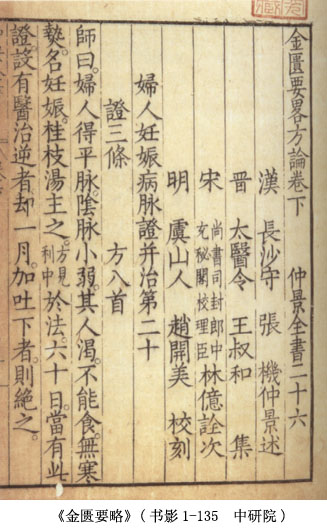 金匱要畧方論卷下　仲景全書二十六
漢　長沙守　張　機仲景述
晉　太醫令　王叔和　集
宋　尚書司封郎中充秘閣校理臣　林億詮次
明　虞山人　趙開美　校刻
婦人妊娠病脉證并治第二十
證三條　方八首
師曰。婦人得平脉。陰脉小弱。其人渴。不能食。無寒
熱。名妊娠。桂枝湯主之。方見利中於法。六十日。當有此
證。設有醫治逆者。却一月。加吐下者。則絶之。
《金匮要略》(书影1-135　中研院)